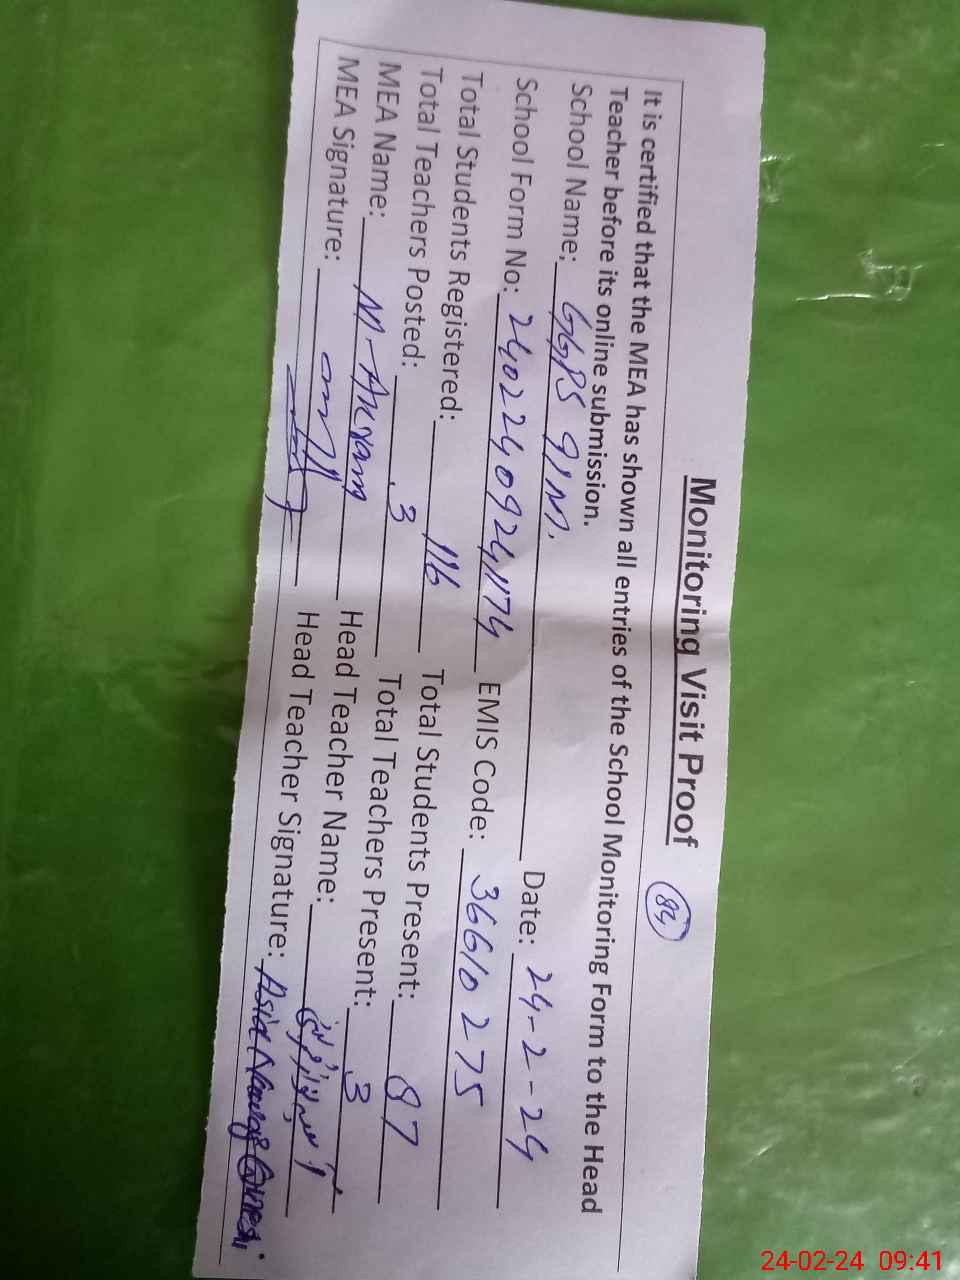 Monitoring Visit Proof 84
It is certified that the MEA has shown all entries of the School Monitoring Form to the Head
Teacher before its online submission.
School Name: GGPS 91M. Date: 24-2-24
School Form No: 24022409241174 EMIS Code: 36610275
Total Students Registered: 116 Total Students Present: 87
Total Teachers Posted: 3 Total Teachers Present: 3
MEA Name: M-Akram Head Teacher Name:
MEA Signature: Head Teacher Signature:
24-02-24 09:41